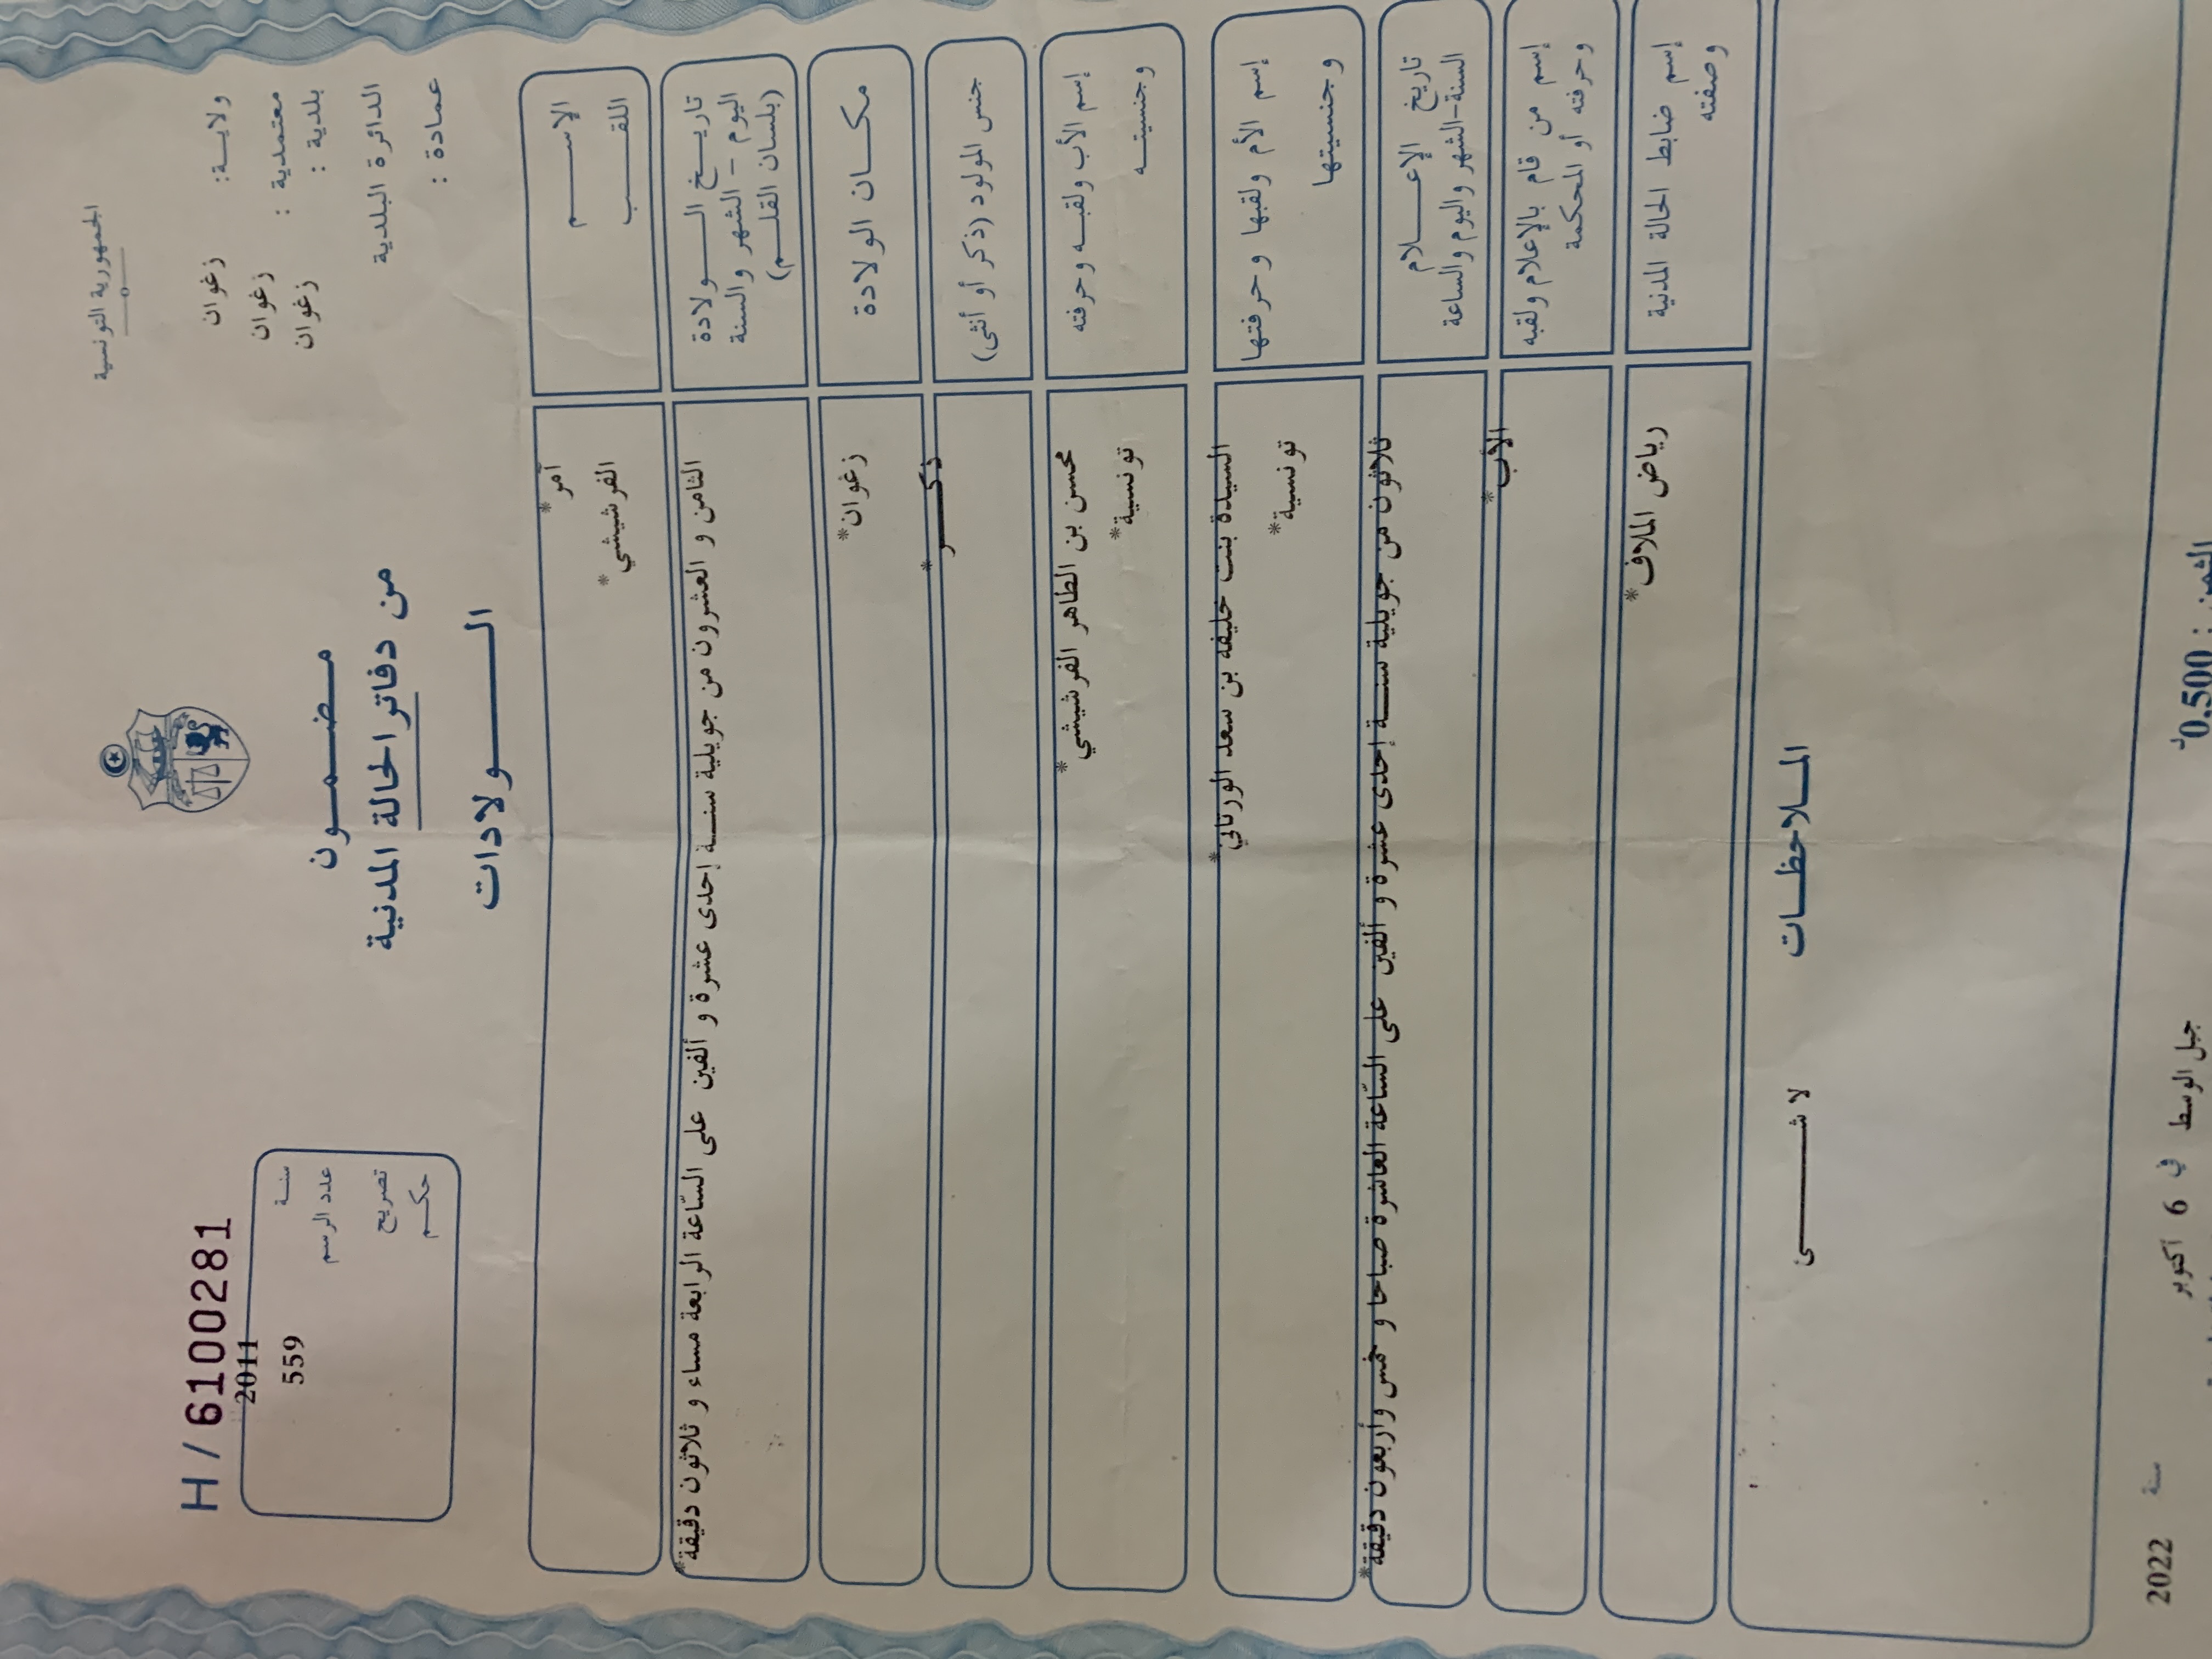 الجمهورية التونسية
ولايـــة: زغوان
معتمدية : زغوان
بلدية : زغوان
الدائرة البلدية
عمادة :
مـــضـــمـــون
من دفاتر الحالة المدنية
الـــــولادات
H / 6100281
سنـة 2011
عدد الرسم 559
تصريح
حكـم
الإســـــم آمر*
اللقـــب الفرشيشي*
تاريـخ الـــولادة
اليوم - الشهر والسنة
(بلسان القلـم)
الثامن و العشرون من جويلية سنـــة إحدى عشرة و ألفين على السّاعة الرابعة مساء و ثلاثون دقيقة*
مكـــان الولادة زغوان*
جنس المولود (ذكر أو أنثى) ذكـــــر*
إسم الأب ولقبـه وحرفته محسن بن الطاهر الفرشيشي*
وجنسيتـه تونسية*
إسم الأم ولقبها وحرفتها السيدة بنت خليفه بن سعد الورتاني*
وجنسيتها تونسية*
تاريخ الإعـــلام
السنة-الشهر واليوم والساعة
ثلاثون من جويلية سنـــة إحدى عشرة و ألفين على السّاعة العاشرة صباحا و خمس وأربعون دقيقة*
إسم من قام بالإعلام ولقبه
وحرفته أو المحكمة
الأب*
إسم ضابط الحالة المدنية
وصفته
رياض الملاف*
المـــلاحظـــات
لا شـــــــئ
جبل الوسط في 6 أكتوبر سنة 2022
الثمن : 0.500د